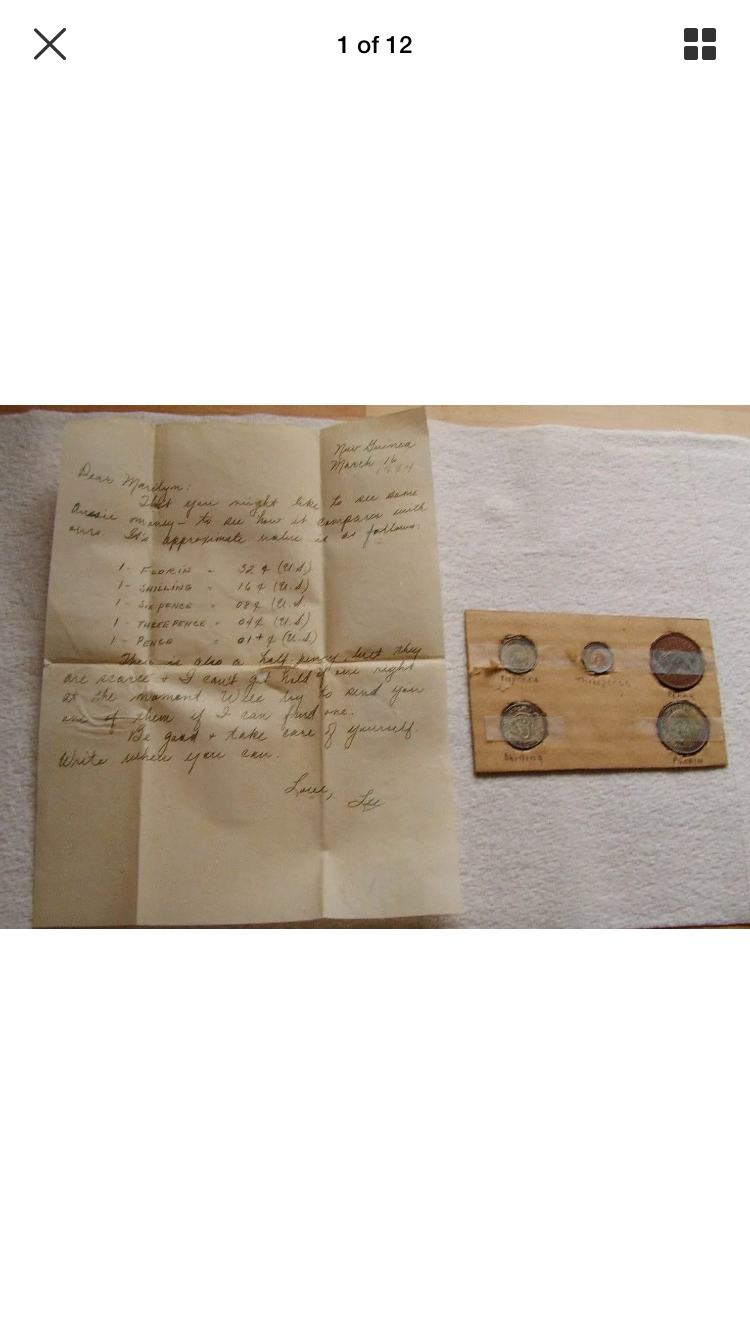 1 of 12
New Guinea
March 16
1944
Dear Marilyn:
Thot you might like to see some
Aussie money - to see how it compares with
ours. It's approximate value is as follows:
1 - FLORIN = 32 ¢ (U.S.)
1 - SHILLING = 16 ¢ (U.S.)
1 - SIXPENCE = 08¢ (U.S.
1 - THREEPENCE = 04¢ (U.S.)
1 - PENCE = 01+¢ (U.S.)
There is also a half-penny, but they
are scarce & I can't get hold of one right
at the moment. Will try to send you
one of them if I can find one.
Be good + take care of yourself.
Write when you can.
Love,
Sixpence Threepence Penny
Shilling Florin